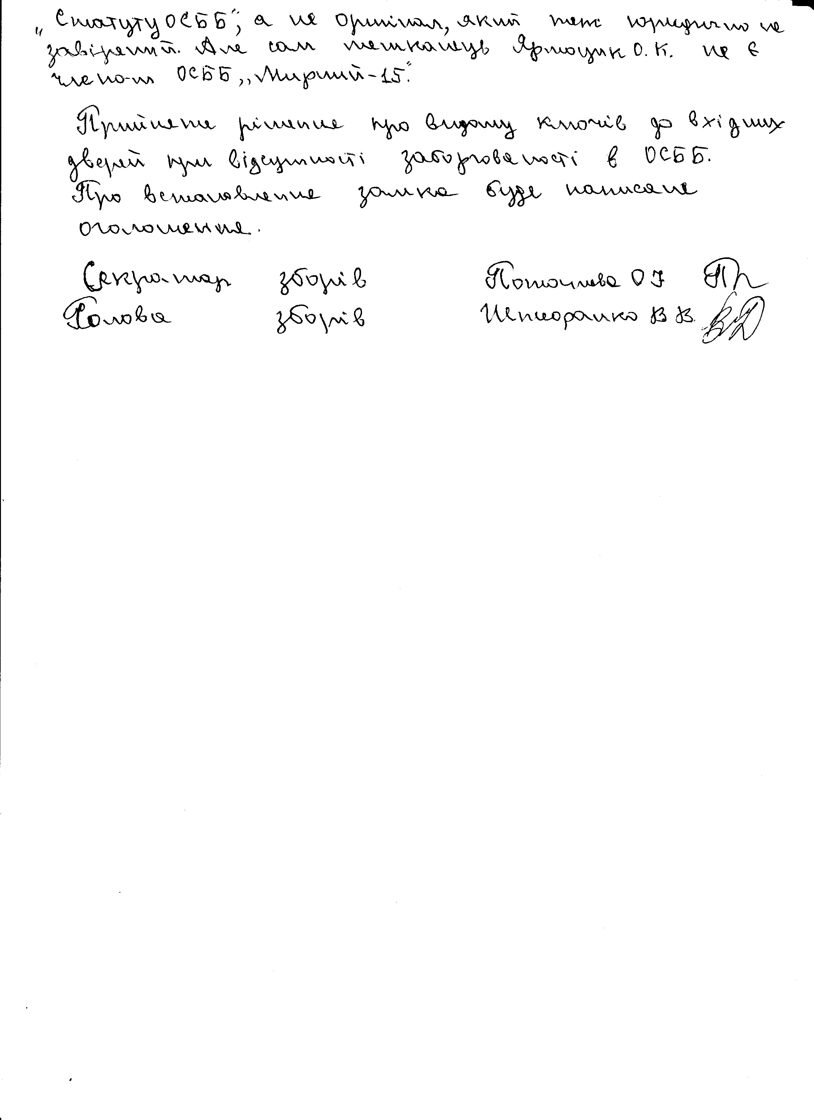 „Статуту ОСББ", а не оригінал, який теж юридично не
завірений. Але сам мешканець Ярмощик О.К. не є
членом ОСББ „Мирний-15".
Прийнете рішення про видачу ключів до вхідних
дверей при відсутності заборгованості в ОСББ.
Про встановлення замка буде написане
оголошення.
Секратар зборів О І
Голова зборів В В